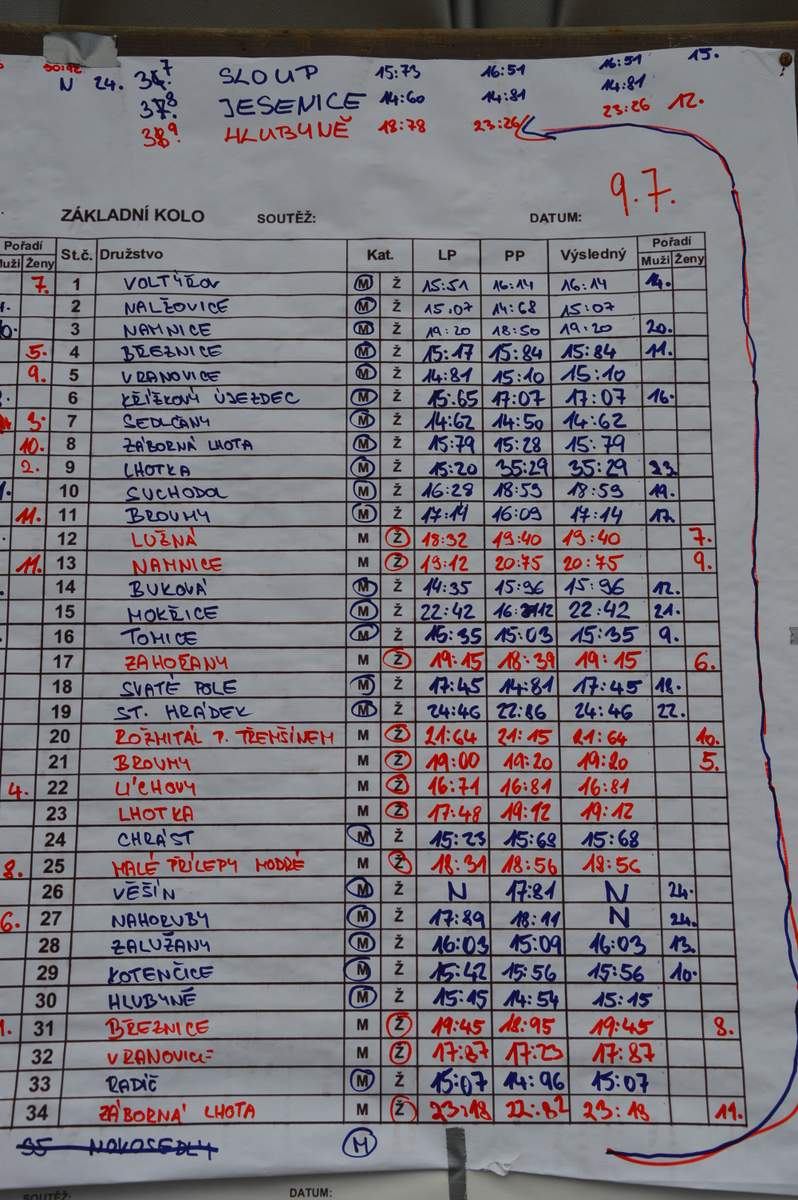 N 24. 37. SLOUP 15:73 16:51 16:51 15.
38. JESENICE 14:60 14:81 14:81
39. HLUBYNĚ 18:78 23:26 23:26 12.
9.7.
ZÁKLADNÍ KOLO SOUTĚŽ: DATUM:
Pořadí St.č. Družstvo Kat. LP PP Výsledný Pořadí
Muži Ženy Muži Ženy
7. 1 VOLTÝŘOV M Ž 15:51 16:14 16:14 14.
2 NALŽOVICE M Ž 15.07 14:68 15:07
3 NAMNICE M Ž 19:20 18:50 19:20 20.
5. 4 BŘEZNICE M Ž 15:17 15:84 15:84 11.
9. 5 VRANOVICE M Ž 14:81 15:10 15:10
6 KŘÍŽKOVÝ ÚJEZDEC M Ž 15.65 17:07 17:07 16.
3. 7 SEDLČANY M Ž 14:62 14:50 14:62
10. 8 ZÁBORNÁ LHOTA M Ž 15:79 15:28 15:79
2. 9 LHOTKA M Ž 15:20 35:29 35:29 23.
10 SUCHODOL M Ž 16:28 18:59 18:59 19.
11. 11 BROUMY M Ž 17:14 16:09 17:14 17.
12 LUŽNÁ M Ž 18:32 19:40 19:40 7.
11. 13 NAMNICE M Ž 19:12 20:75 20:75 9.
14 BUKOVÁ M Ž 14:35 15:96 15:96 12.
15 MOKŘICE M Ž 22:42 22:42 21.
16 TOMICE M Ž 15:35 15:03 15:35 9.
17 ZAHOŘANY M Ž 19:15 18:39 19:15 6.
18 SVATÉ POLE M Ž 17:45 14:81 17:45 18.
19 ST. HRÁDEK M Ž 24:46 22:86 24:46 22.
20 ROŽMITÁL P. TŘEMŠÍNEM M Ž 21:64 21:15 21:64 10.
21 BROUMY M Ž 19:00 19:20 19:20 5.
4. 22 LÍCHOVY M Ž 16:71 16:81 16:81
23 LHOTKA M Ž 17:48 19:12 19:12
24 CHRÁST M Ž 15:23 15:68 15:68
8. 25 MALÉ PŘÍLEPY MODRÉ M Ž 18:31 18:56 18:56
26 VĚŠÍN M Ž N 17:81 N 24.
6. 27 NAHORUBY M Ž 17:89 18:11 N 24.
28 ZALUŽANY M Ž 16:03 15:09 16:03 13.
29 KOTENČICE M Ž 15:42 15:56 15:56 10.
30 HLUBYNĚ M Ž 15:15 14:54 15:15
1. 31 BŘEZNICE M Ž 19:45 18:95 19:45 8.
32 VRANOVICE M Ž 17:87 17:23 17:87
33 RADÍČ M Ž 15:07 14:96 15:07
34 ZÁBORNÁ LHOTA M Ž 23:18 22:82 23:18 11.
35 NOVOSEDLY M
SOUTĚŽ: DATUM: